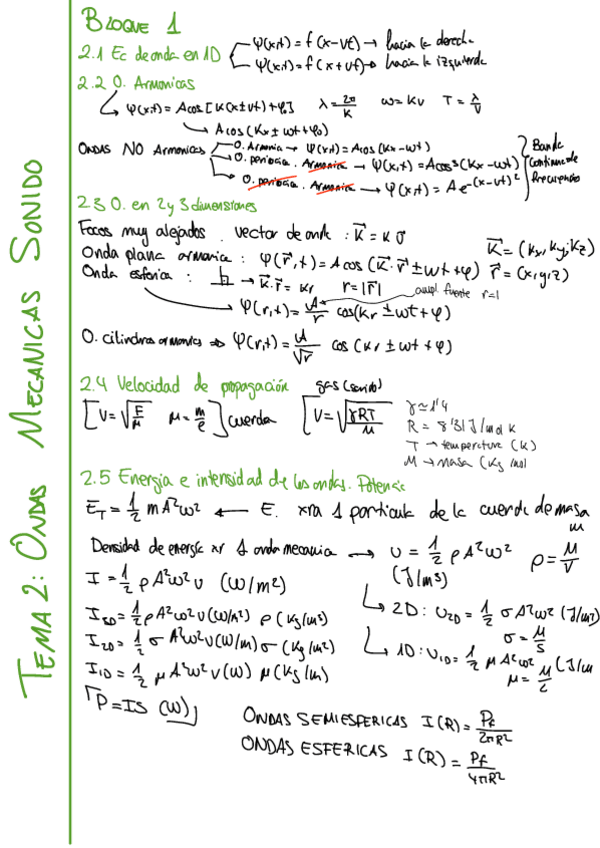 TEMA 2: ONDAS MECANICAS SONIDO
BLOQUE 1
2.1 Ec de onda en 1D
φ(x,t) = f(x-vt) → hacia la derecha
φ(x,t) = f(x+vt) → hacia la izquierda
2.2 O. Armonicas
φ(x,t) = A cos[K(x±vt)+φ] λ = 2π/K ω = Kv T = λ/v
→ A cos(Kx ± ωt + φ₀)
ONDAS NO Armonicas
O. Armonia → φ(x,t) = A cos(Kx-ωt)
O. periodica. Armonica → φ(x,t) = A cos³(Kx-ωt)
O. periodica. Armonica → φ(x,t) = A e^-(x-vt)²
Banda continua de frecuencias
2.3 O. en 2 y 3 dimensiones
Focos muy alejados. vector de onda : K⃗ = K v⃗
K⃗ = (kx, ky, kz)
Onda plana armonica : φ(r⃗,t) = A cos(K⃗·r⃗ ± ωt + φ) r⃗ = (x,y,z)
Onda esferica : → K⃗·r⃗ = Kr r = |r⃗|
ampl. fuente r=1
φ(r,t) = A/r cos(Kr ± ωt + φ)
O. cilindrica armonica ⇒ φ(r,t) = A/√r cos(Kr ± ωt + φ)
2.4 Velocidad de propagación gas (sonido)
[v = √(F/μ) μ = m/l] cuerda [v = √(γRT/M)]
γ ≃ 1'4
R = 8'31 J/mol K
T → temperatura (K)
M → masa (Kg/mol
2.5 Energia e intensidad de las ondas. Potencia
E_T = 1/2 m A²ω² ← E. xra 1 particula de la cuerda de masa m
Densidad de energía xr 1 onda mecanica → υ = 1/2 ρ A²ω² ρ = M/V
(J/m³)
I = 1/2 ρ A²ω²v (W/m²)
→ 2D: υ₂D = 1/2 σ A²ω² (J/m²)
σ = M/S
I₃D = 1/2 ρ A²ω²v (W/m²) ρ (Kg/m³)
I₂D = 1/2 σ A²ω²v (W/m) σ (Kg/m²)
→ 1D: υ₁D = 1/2 μ A²ω² (J/m
μ = M/L
I₁D = 1/2 μ A²ω²v (W) μ (Kg/m)
P = IS (W)
ONDAS SEMIESFERICAS I(R) = Pf/2πR²
ONDAS ESFERICAS I(R) = Pf/4πR²